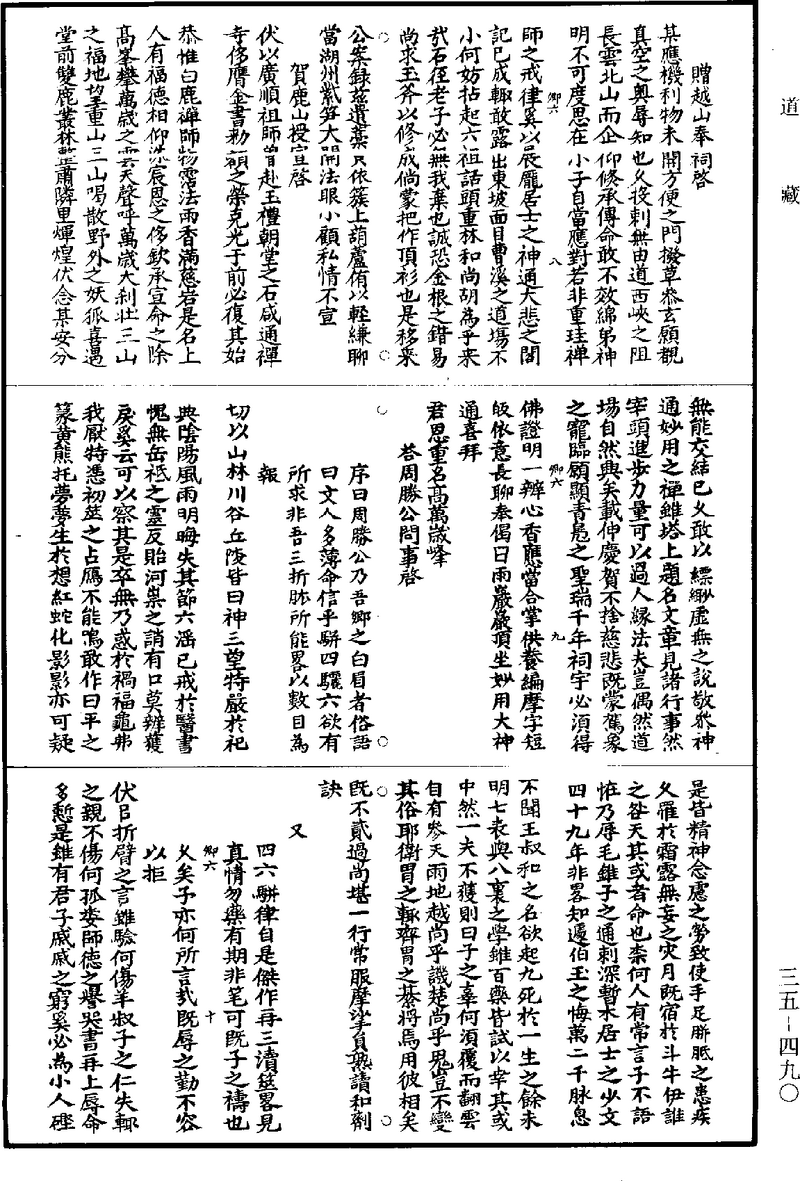 道藏
贈越山奉祠啓
某應機利物未開方便之門撥草參玄願覩
真空之奧辱知也久投刺無由道西峽之阻
長雲北山而企仰修承傳命敢不效綿弟神
明不可度思在小子自當應對若非重珪禅
師之戒律奚以展龐居士之神通大悲之閣
記已成輙敢露出東坡面目曹溪之道場不
小何妨拈起六祖話頭重林和尚胡為乎来
㦲石徑老子必無我棄也誠恐金根之錯易
尚求玉斧以修成倘蒙把作頂衫也是移来
公案録茲遺藁只依簇上葫蘆侑以輕縑聊
當湖州紫笋大開法眼小顧私情不宣
賀鹿山授宣啓
伏以廣順祖師曽赴玉禮朝堂之石咸通禪
寺侈膺金書勅額之榮克光于前必復其始
恭惟白鹿禪師物霑法雨香滿慈岩是名上
人有福德相仰沐宸恩之侈欽承宣命之除
髙峯攀萬歲之雲天聲呼萬歲大利壮三山
之福地望重山三山喝散野外之妖狐喜遇
堂前雙鹿叢林整肅隣里煇煌伏念某安分
無能交結已久敢以縹緲虛無之說敬參神
通妙用之禪雖塔上題名文章見諸行事然
宰頭進步力量可以過人縁法夫豈偶然道
場自然興矣載伸慶賀不捨慈悲既蒙駕象
之寵臨願顯青鳧之聖瑞千年祠宇必湏得
佛證明一辨心香應當合掌供養編摩字短
皈依意長聊奉偈曰雨巖巖頂坐妙用大神
通喜拜
君恩重名髙萬歲峰
荅周勝公問事啓
序曰周勝公乃吾鄉之白眉者俗語
曰文人多薄命信乎駢四驪六欲有
所求非吾三折肱所能畧以數目為
報
切以山林川谷丘陵皆曰神三望特嚴於祀
典陰陽風雨明晦失其節六滛已戒於醫書
愧無岳祇之靈反貽河祟之誚有口莫辨獲
戾奚云可以察其是卒無乃惑於禍福龜弗
我厭特憑初筮之占鴈不能鳴敢作曰平之
篆黄熊托夢夢生於想紅蛇化影影亦可疑
是皆精神念慮之勞致使手足胼胝之患疾
久罹於霜露無妄之灾月既宿於斗牛伊誰
之咎天其或者命也柰何人有常言子不語
恠乃辱毛錐子之通刺深暫木居士之少文
四十九年非畧知遽伯玉之悔萬二千脉息
不聞王叔和之名欲起九死於一生之餘未
明七表與八裏之學雖百藥皆試以幸其或
中然一夫不獲則曰予之辜何湏覆而翻雲
自有參天雨地越尚乎譏楚尚乎鬼豈不變
其俗耶衛胃之輙齊胃之綦將焉用彼相矣
既不貳過尚堪一行常服摩挲負熟讀和劑
訣
又
四六駢律自是傑作再三瀆筮畧見
真情勿藥有期非笔可既子之禱也
久矣予亦何所言㢤既辱之勤不容
以拒
伏㠯折臂之言雖驗何傷羊叔子之仁失輙
之親不傷何孤婁師徳之譽哭書再上辱命
多慙是雖有君子戚戚之窮奚必為小人硜
卿六
八
卿六
九
卿六
十
三五－四九〇